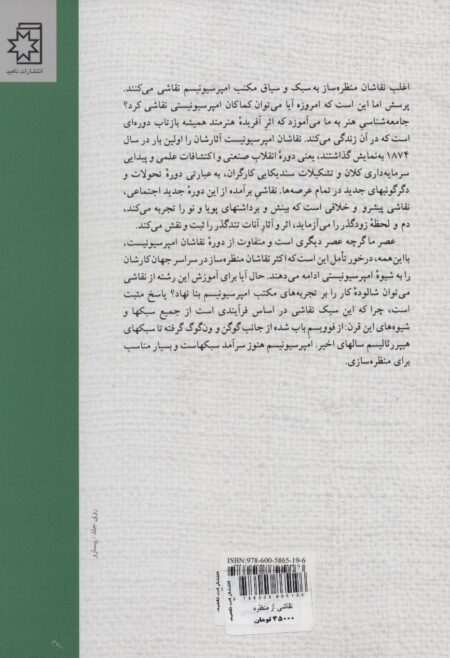 انتشارات ناهید
اغلب نقاشان منظره‌ساز به سبک و سیاق مکتب امپرسیونیسم نقاشی می‌کنند.
پرسش اما این است که امروزه آیا می‌توان کماکان امپرسیونیستی نقاشی کرد؟
جامعه‌شناسیِ هنر به ما می‌آموزد که اثرِ آفریدهٔ هنرمند همیشه بازتاب دوره‌ای
است که در آن زندگی می‌کند. نقاشان امپرسیونیست آثارشان را اولین بار در سال
۱۸۷۴ به‌نمایش گذاشتند، یعنی دورهٔ انقلاب صنعتی و اکتشافات علمی و پیدایی
سرمایه‌داری کلان و تشکیلات سندیکایی کارگران، به عبارتی دورهٔ تحولات و
دگرگونیهای جدید در تمام عرصه‌ها. نقاشیِ برآمده از این دورهٔ جدید اجتماعی،
نقاشی پیشرو و خلاقی است که بینش و برداشتهای پویا و نو را تجربه می‌کند،
دم و لحظهٔ زودگذر را می‌آزماید، اثر و آثارِ آناتِ تندگذر را ثبت و نقش می‌کند.
عصر ما گرچه عصر دیگری است و متفاوت از دورهٔ نقاشان امپرسیونیست،
بااین‌همه، درخور تأمل این است که اکثر نقاشان منظره‌ساز در سراسر جهان کارشان
را به شیوهٔ امپرسیونیستی ادامه می‌دهند. حال آیا برای آموزش این رشته از نقاشی
می‌توان شالودهٔ کار را بر تجربه‌های مکتب امپرسیونیسم بنا نهاد؟ پاسخ مثبت
است، چرا که این سبک نقاشی در اساس فرآیندی است از جمیع سبکها و
شیوه‌های این قرن: از فوویسم باب شده از جانب گوگن و ون‌گوگ گرفته تا سبکهای
هیپررئالیسم سالهای اخیر. امپرسیونیسم هنوز سرآمد سبکهاست و بسیار مناسب
برای منظره‌سازی.
روی جلد: پیسارو
ISBN:978-600-5865-19-6
نقاشی از منظره
۴۵۰۰۰ تومان